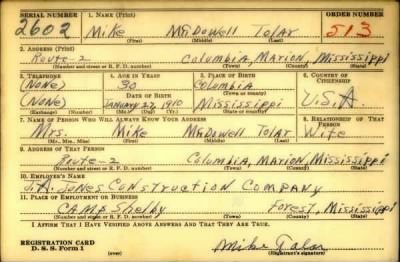 SERIAL NUMBER 1. NAME (Print) ORDER NUMBER
2602 Mike McDowell Tolar 513
(First) (Middle) (Last)
2. ADDRESS (Print)
Route-2 Columbia, Marion, Mississippi
(Number and street or R. F. D. number) (Town) (County) (State)
3. TELEPHONE 4. AGE IN YEARS 5. PLACE OF BIRTH 6. COUNTRY OF CITIZENSHIP
(None) 30 Columbia
DATE OF BIRTH (Town or county)
(None) January 27, 1910 Mississippi U.S.A.
(Exchange) (Number) (Mo.) (Day) (Yr.) (State or country)
7. NAME OF PERSON WHO WILL ALWAYS KNOW YOUR ADDRESS 8. RELATIONSHIP OF THAT PERSON
Mrs. Mike McDowell Tolar Wife
(Mr., Mrs., Miss) (First) (Middle) (Last)
9. ADDRESS OF THAT PERSON
Route-2 Columbia, Marion, Mississippi
(Number and street or R. F. D. number) (Town) (County) (State)
10. EMPLOYER'S NAME
J.A. Jones Construction Company
11. PLACE OF EMPLOYMENT OR BUSINESS
Camp Shelby Forest, Mississippi
(Number and street or R. F. D. number) (Town) (County) (State)
I AFFIRM THAT I HAVE VERIFIED ABOVE ANSWERS AND THAT THEY ARE TRUE.
REGISTRATION CARD
D. S. S. Form 1 (over) Mike Tolar
(Registrant's signature)